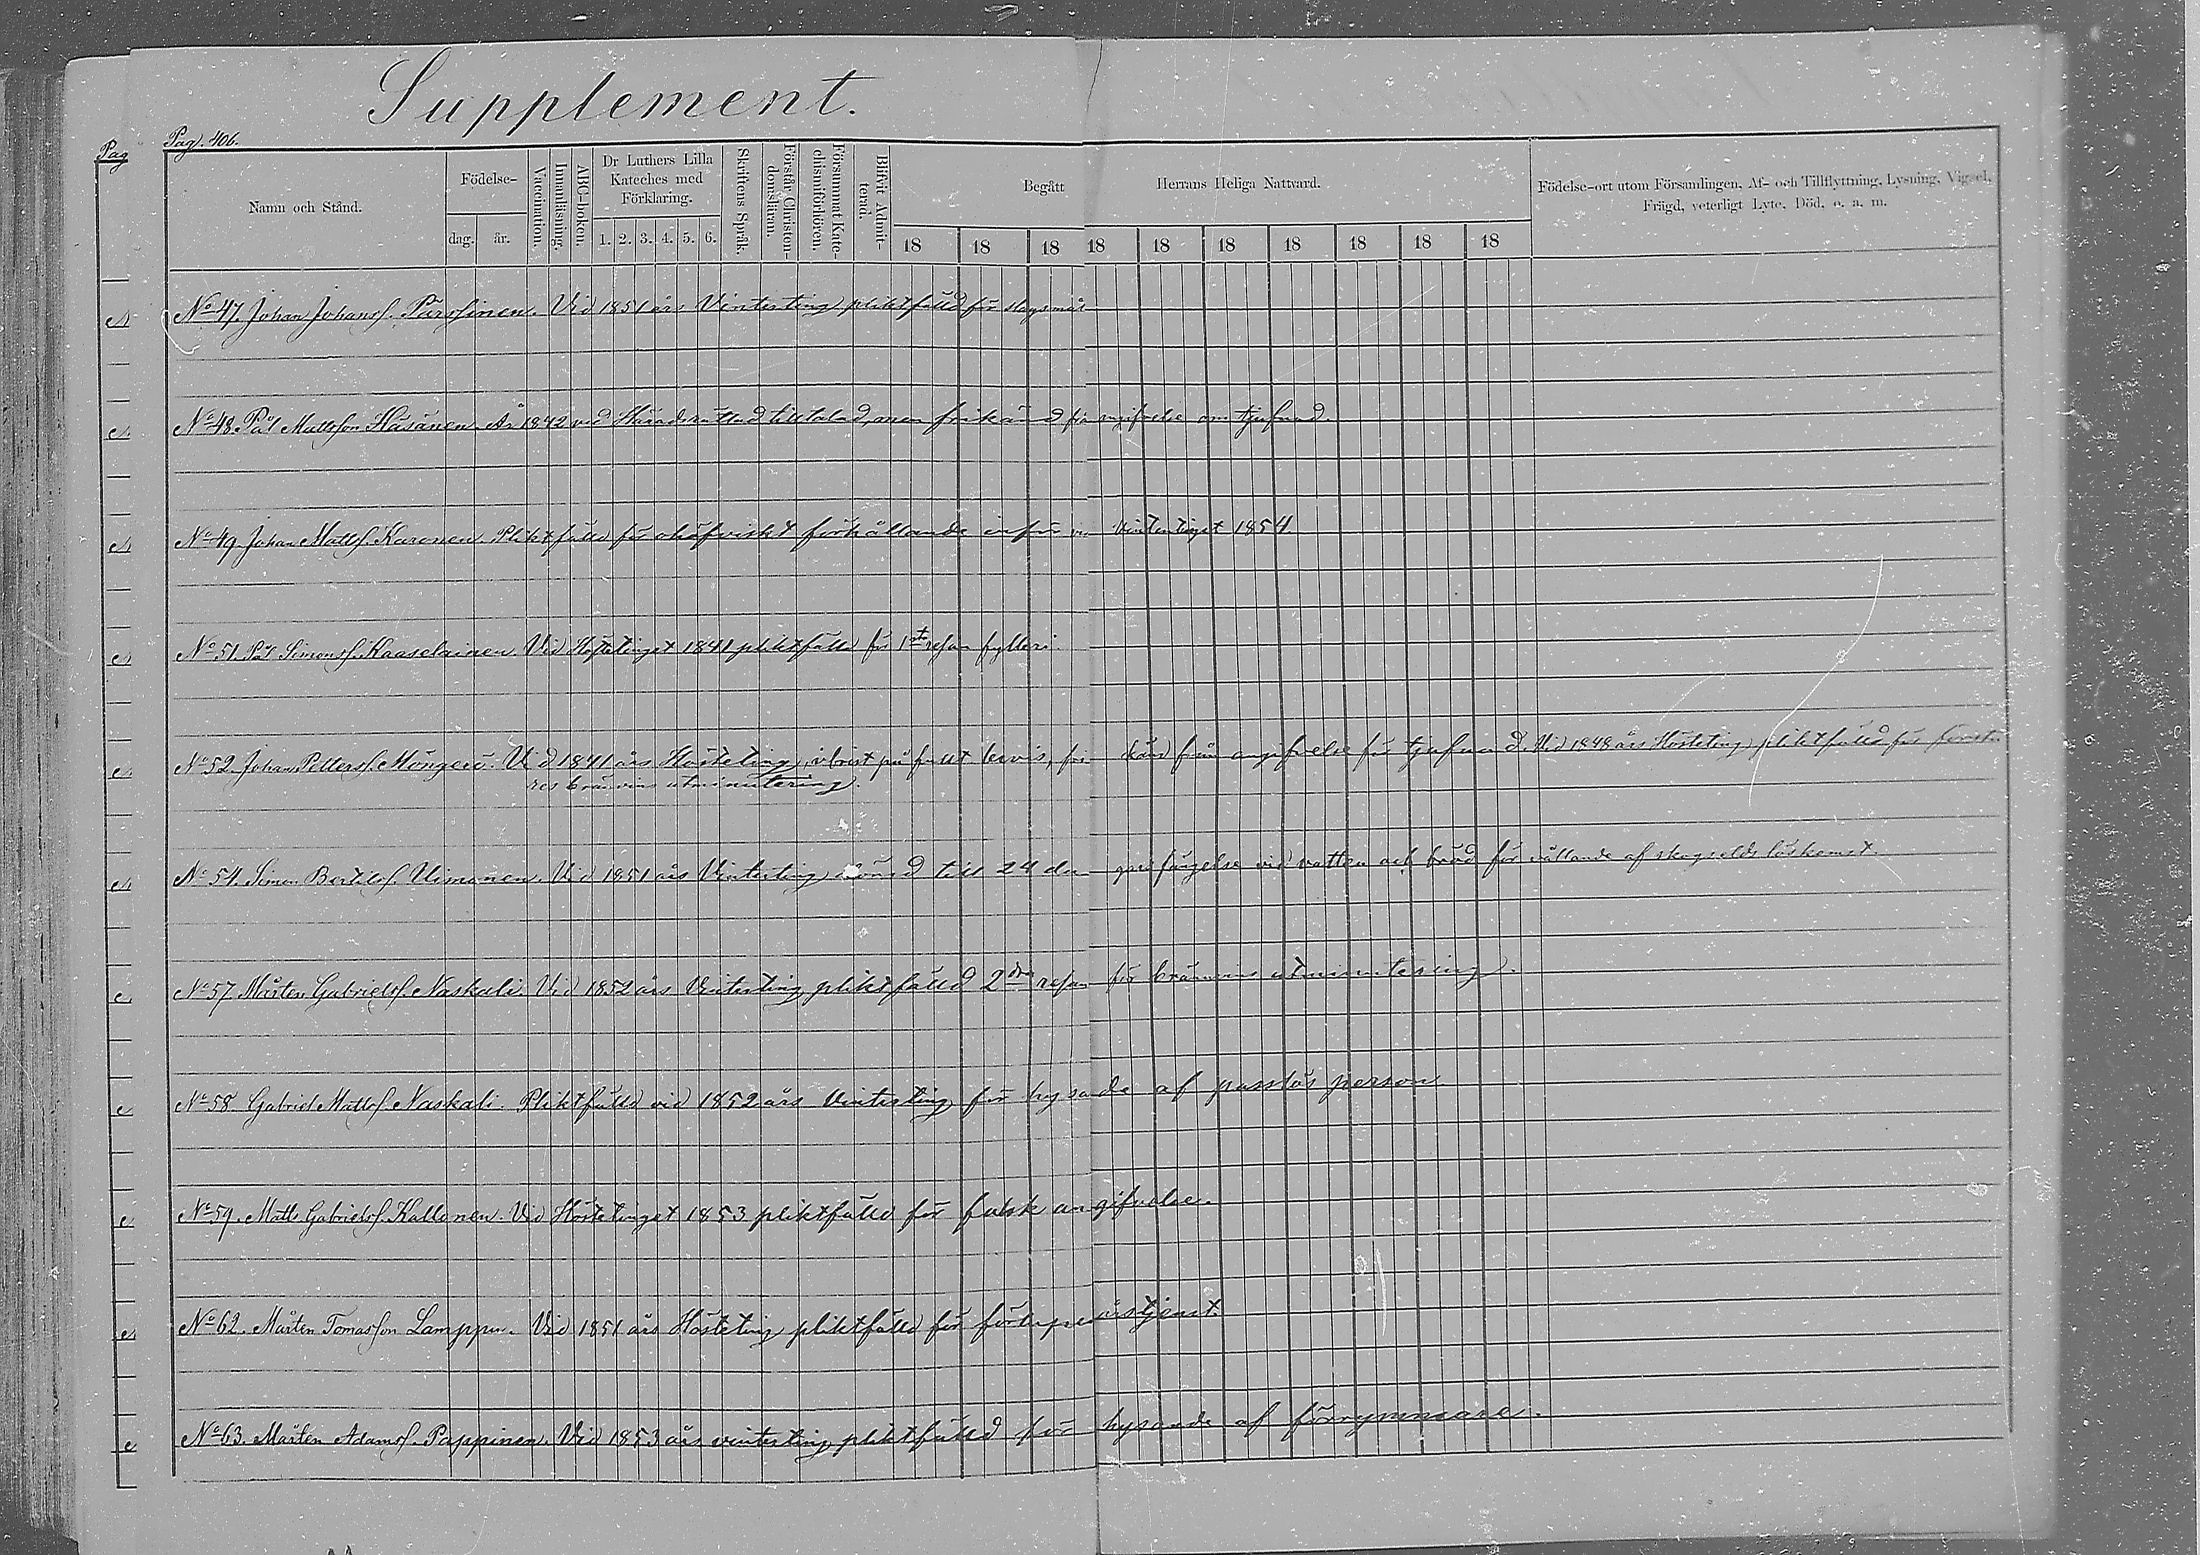 Supplement.
Pag
Pag. 406.
Namn och Stånd.
Födelse-
dag.
år.
Vaccination.
Innanläsning.
ABC-boken
Dr Luthers Lilla
Kateches med
Förklaring.
1. 2. 3. 4. 5. 6.
Skriftens Språk.
Förstår Christen-
domsläran.
Försummat Kate-
chismiförhören.
Blifvit Admit-
terad.
Begått
Herrans Heliga Nattvard.
18 18 18 18 18 18 18 18 18 18
Födelse-ort utom Församlingen, Af- och Tillflyttning, Lysning, Vigsel,
Frägd, veterligt Lyte, Död, e. a. m.
No 47. Johan Johansf. Pärssinen. Vid 1851 års Vinterting pliktfälld för slagsmål
No 48. Pål Mattsson Häsänen. År 1842 vid Häradsrätten tilltalad, men frikänd från angifvelse om tjufnad.
No 49. Johan Mattsf. Karonen. Pliktfälld för ohöfviskt förhållande inför vintertinget 1854.
No 51. Pål Simonsf. Kaaselainen. Vid Hösttinget 1841 pliktfälld för 1sta resan fylleri.
No 52. Johan Pettersf. Möngerö. Vid 1841 års Hösteting, i brist på fullt bevis, frikänd från angifvelse för tjufnad. Vid 1848 års Hösteting pliktfälld för
bränvins utminutering.
No 54. Simon Bertilsf. Uimonen. Vid 1851 års Vinterting dömd till 24 dagars fängelse vid vatten och bröd för vållande af skogselds löskomst.
No 57. Mårten Gabrielsf. Naskali. Vid 1852 års Vinterting pliktfälld 2dra resan för bränvins utminutering.
No 58. Gabriel Mattsf. Naskali. Pliktfälld vid 1852 års Vinterting för hysande af passlös person.
No 59. Matts Gabrielsf. Kallonen. Vid Höstetinget 1853 pliktfälld för falsk angifvelse.
No 62. Mårten Tomasson Lamppu. Vid 1851 års Hösteting pliktfälld för förlupen årstjenst.
No 63. Mårten Adamsf. Pappinen. Vid 1853 års vinterting pliktfälld för hysande af förrymmare.